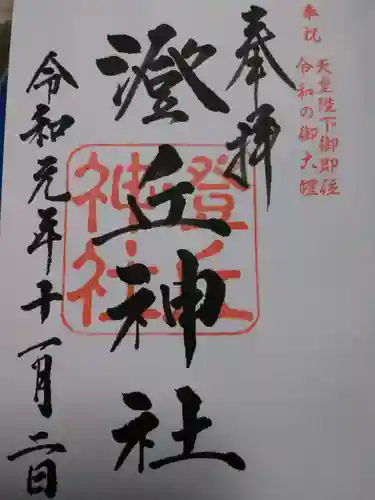 奉祝
天皇陛下御即位
令和の御大礼
奉拝
澄丘神社
澄丘神社
令和元年十一月二日